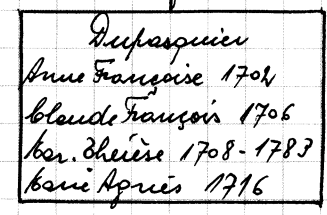 Dupasquier
Anne Françoise 1702
Claude François 1706
Mar. Thérèse 1708-1783
Marie Agnès 1716